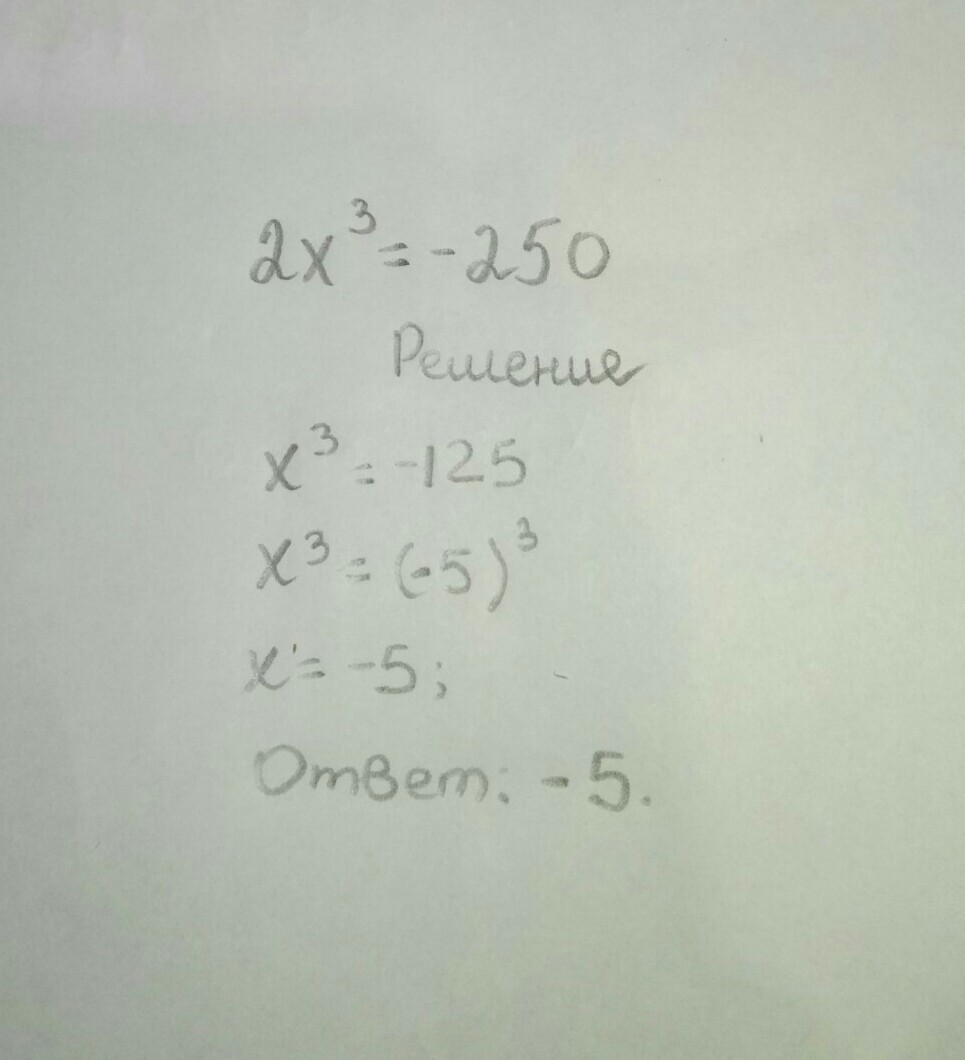 2x³=-250
Решение
x³=-125
x³=(-5)³
x=-5;
Ответ: -5.